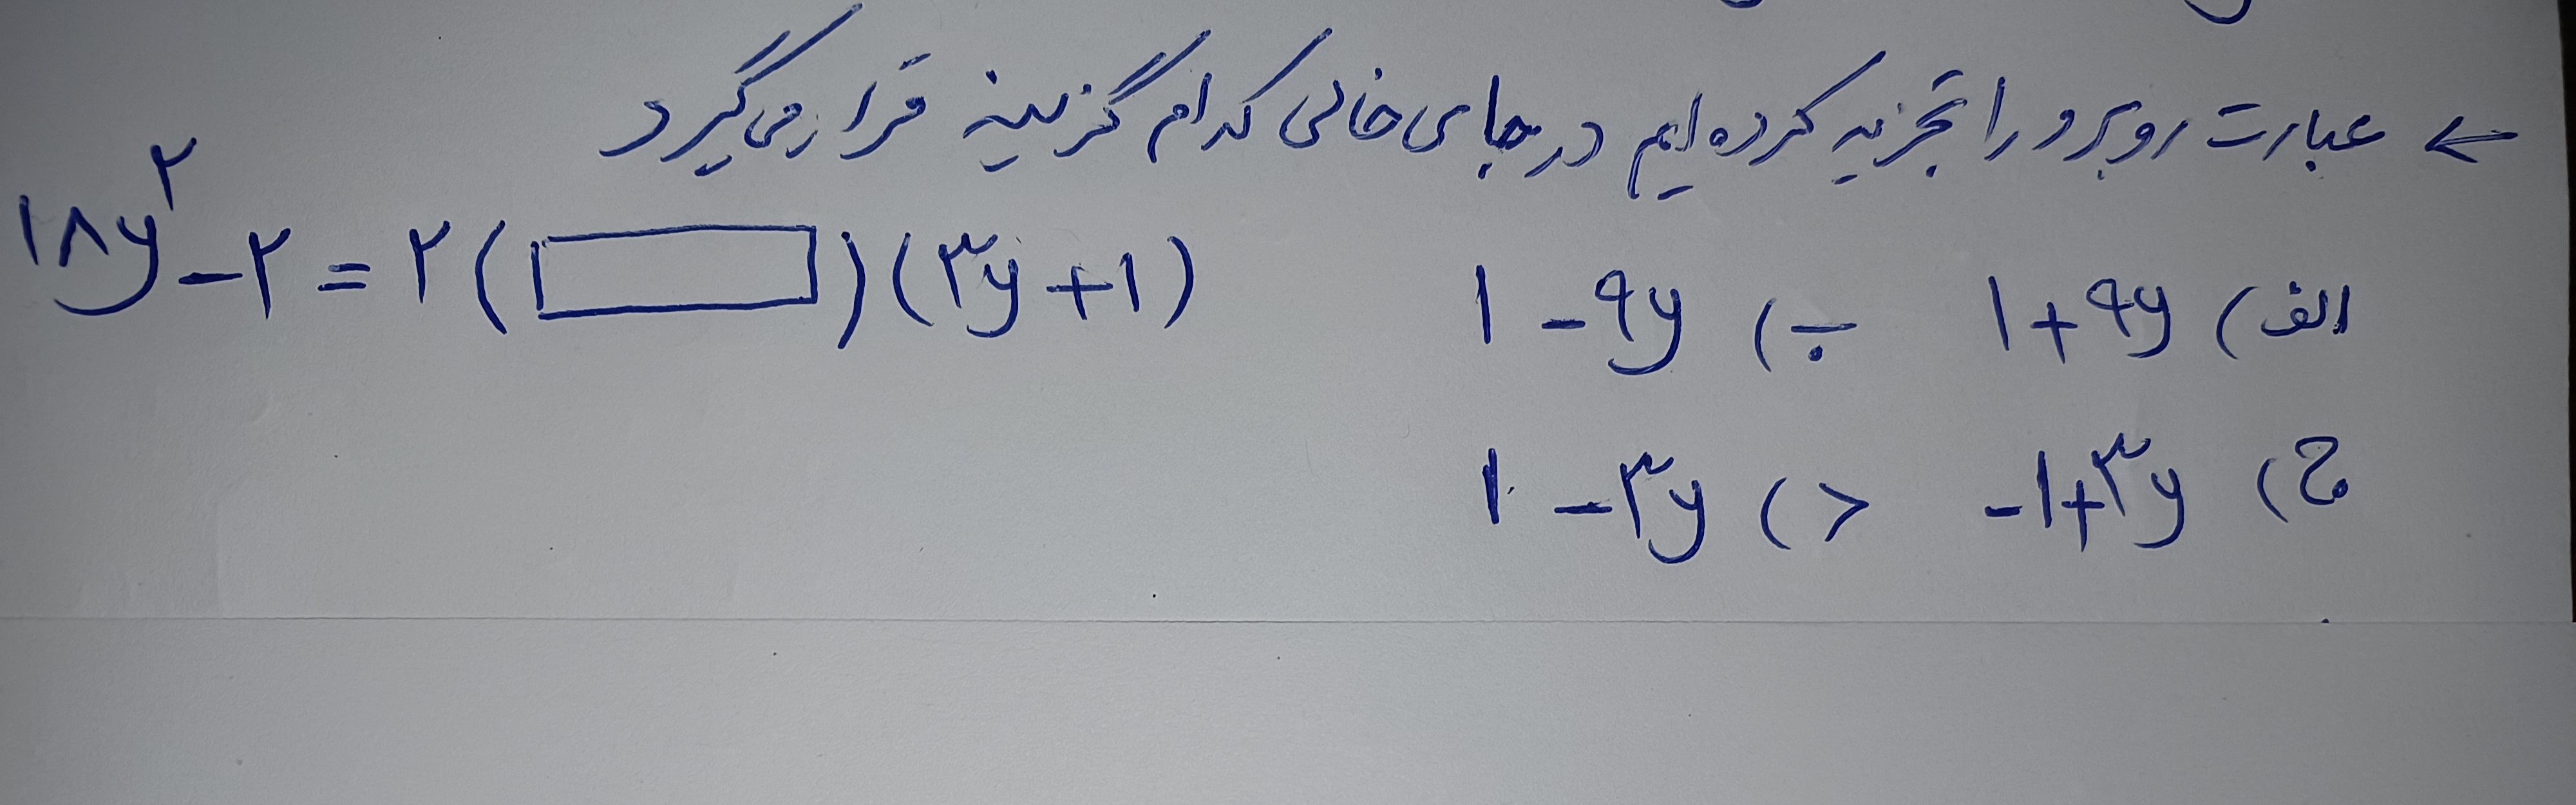 ← عبارت روبرو را تجزیه کرده‌ایم در جای خالی کدام گزینه قرار می‌گیرد
۱۸y^۲ - ۲ = ۲( )(۳y + ۱)
الف) ۱ + ۹y ب) ۱ - ۹y
ج) -۱ + ۳y د) ۱ - ۳y